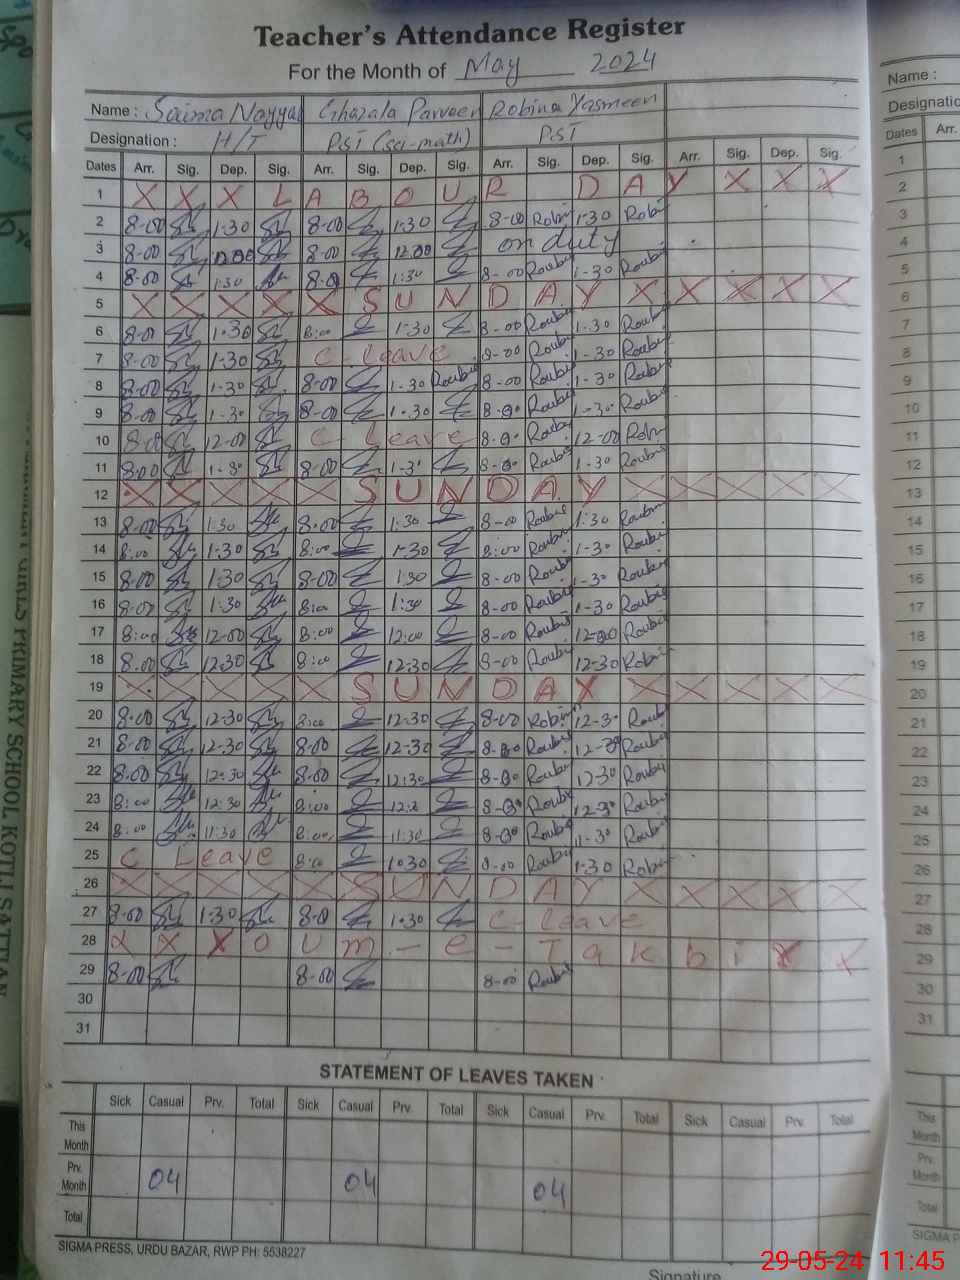 Teacher's Attendance Register
For the Month of May 2024
Name : Saima Nayyar Ghazala Parveen Robina Yasmeen
Designation : H/T P.S.T (sci-math) P.S.T
Dates Arr. Sig. Dep. Sig. Arr. Sig. Dep. Sig. Arr. Sig. Dep. Sig. Arr. Sig. Dep. Sig.
1 X X X L A B O U R D A Y X X X
2 8-00 1-30 8-00 1-30 8-00 Robi 1-30 Robi
3 8-00 12.00 8-00 12.00 on duty
4 8-00 1:30 8-0 1:30 8-00 Roubi 1-30 Roubi
5 X X X X X S U N D A Y X X X X X
6 8-00 1-30 8:00 1-30 8-00 Roubi 1-30 Roubi
7 8-00 1-30 C - Leave 8-00 Roubi 1-30 Roubi
8 8-00 1-30 8-00 1-30 Roubi 8-00 Roubi 1-30 Roubi
9 8-00 1-30 8-00 1-30 8-0 Roubi 1-30 Roubi
10 8-0 12-00 C - Leave 8-0 Roubi 12-00 Robi
11 8-00 1-3 8-00 1-3 8-0 Roubi 1-30 Roubi
12 X X X X X S U N D A Y X X X X X
13 8-00 1:30 8-00 1:30 8-00 Roubi 1:30 Roubi
14 8:00 1-30 8:00 1-30 8:00 Roubi 1-30 Roubi
15 8-00 1-30 8-00 1:30 8-00 Roubi 1-30 Roubi
16 8-00 1-30 8:00 1:30 8-00 Roubi 1-30 Roubi
17 8:00 12-00 8:00 12:00 8-00 Roubi 12-00 Roubi
18 8-00 12-30 8:00 12-30 8-00 Roubi 12-30 Robi
19 X X X X X S U N D A Y X X X X X
20 8-00 12-30 8:00 12-30 8-00 Robi 12-30 Roubi
21 8-00 12-30 8-00 12-30 8-00 Roubi 12-30 Roubi
22 8-00 12:30 8-00 12:30 8-0 Roubi 12-30 Roubi
23 8:00 12:30 8:00 8-0 Roubi 12-30 Roubi
24 8:00 11:30 8:00 11:30 8-0 Roubi 11-30 Roubi
25 C Leave 8:00 1-30 8-00 Roubi 1-30 Robi
26 X X X X X S U N D A Y X X X X X
27 8-00 1-30 8-0 1-30 C - Leave
28 X X X O U m - e - T a k b i X X
29 8-00 8-00 8-00 Roubi
30
31
STATEMENT OF LEAVES TAKEN
Sick Casual Prv. Total Sick Casual Prv. Total Sick Casual Prv. Total Sick Casual Prv. Total
This Month
Prv. Month 04 04 04
Total
SIGMA PRESS, URDU BAZAR, RWP PH: 5538227
Signature
Name :
Dates Arr.
1
2
3
4
5
6
7
8
9
10
11
12
13
14
15
16
17
18
19
20
21
22
23
24
25
26
27
28
29
30
31
This Month
Prv. Month
Total
PRIMARY SCHOOL KOTLI SATTIAN
29-05-24 11:45